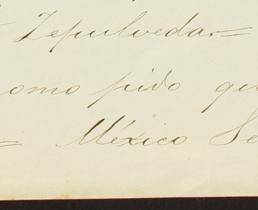 Zepulveda=
omo pido qu
= México Se